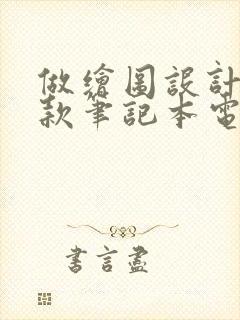 做繪圖設計
款筆記本電
書言盡